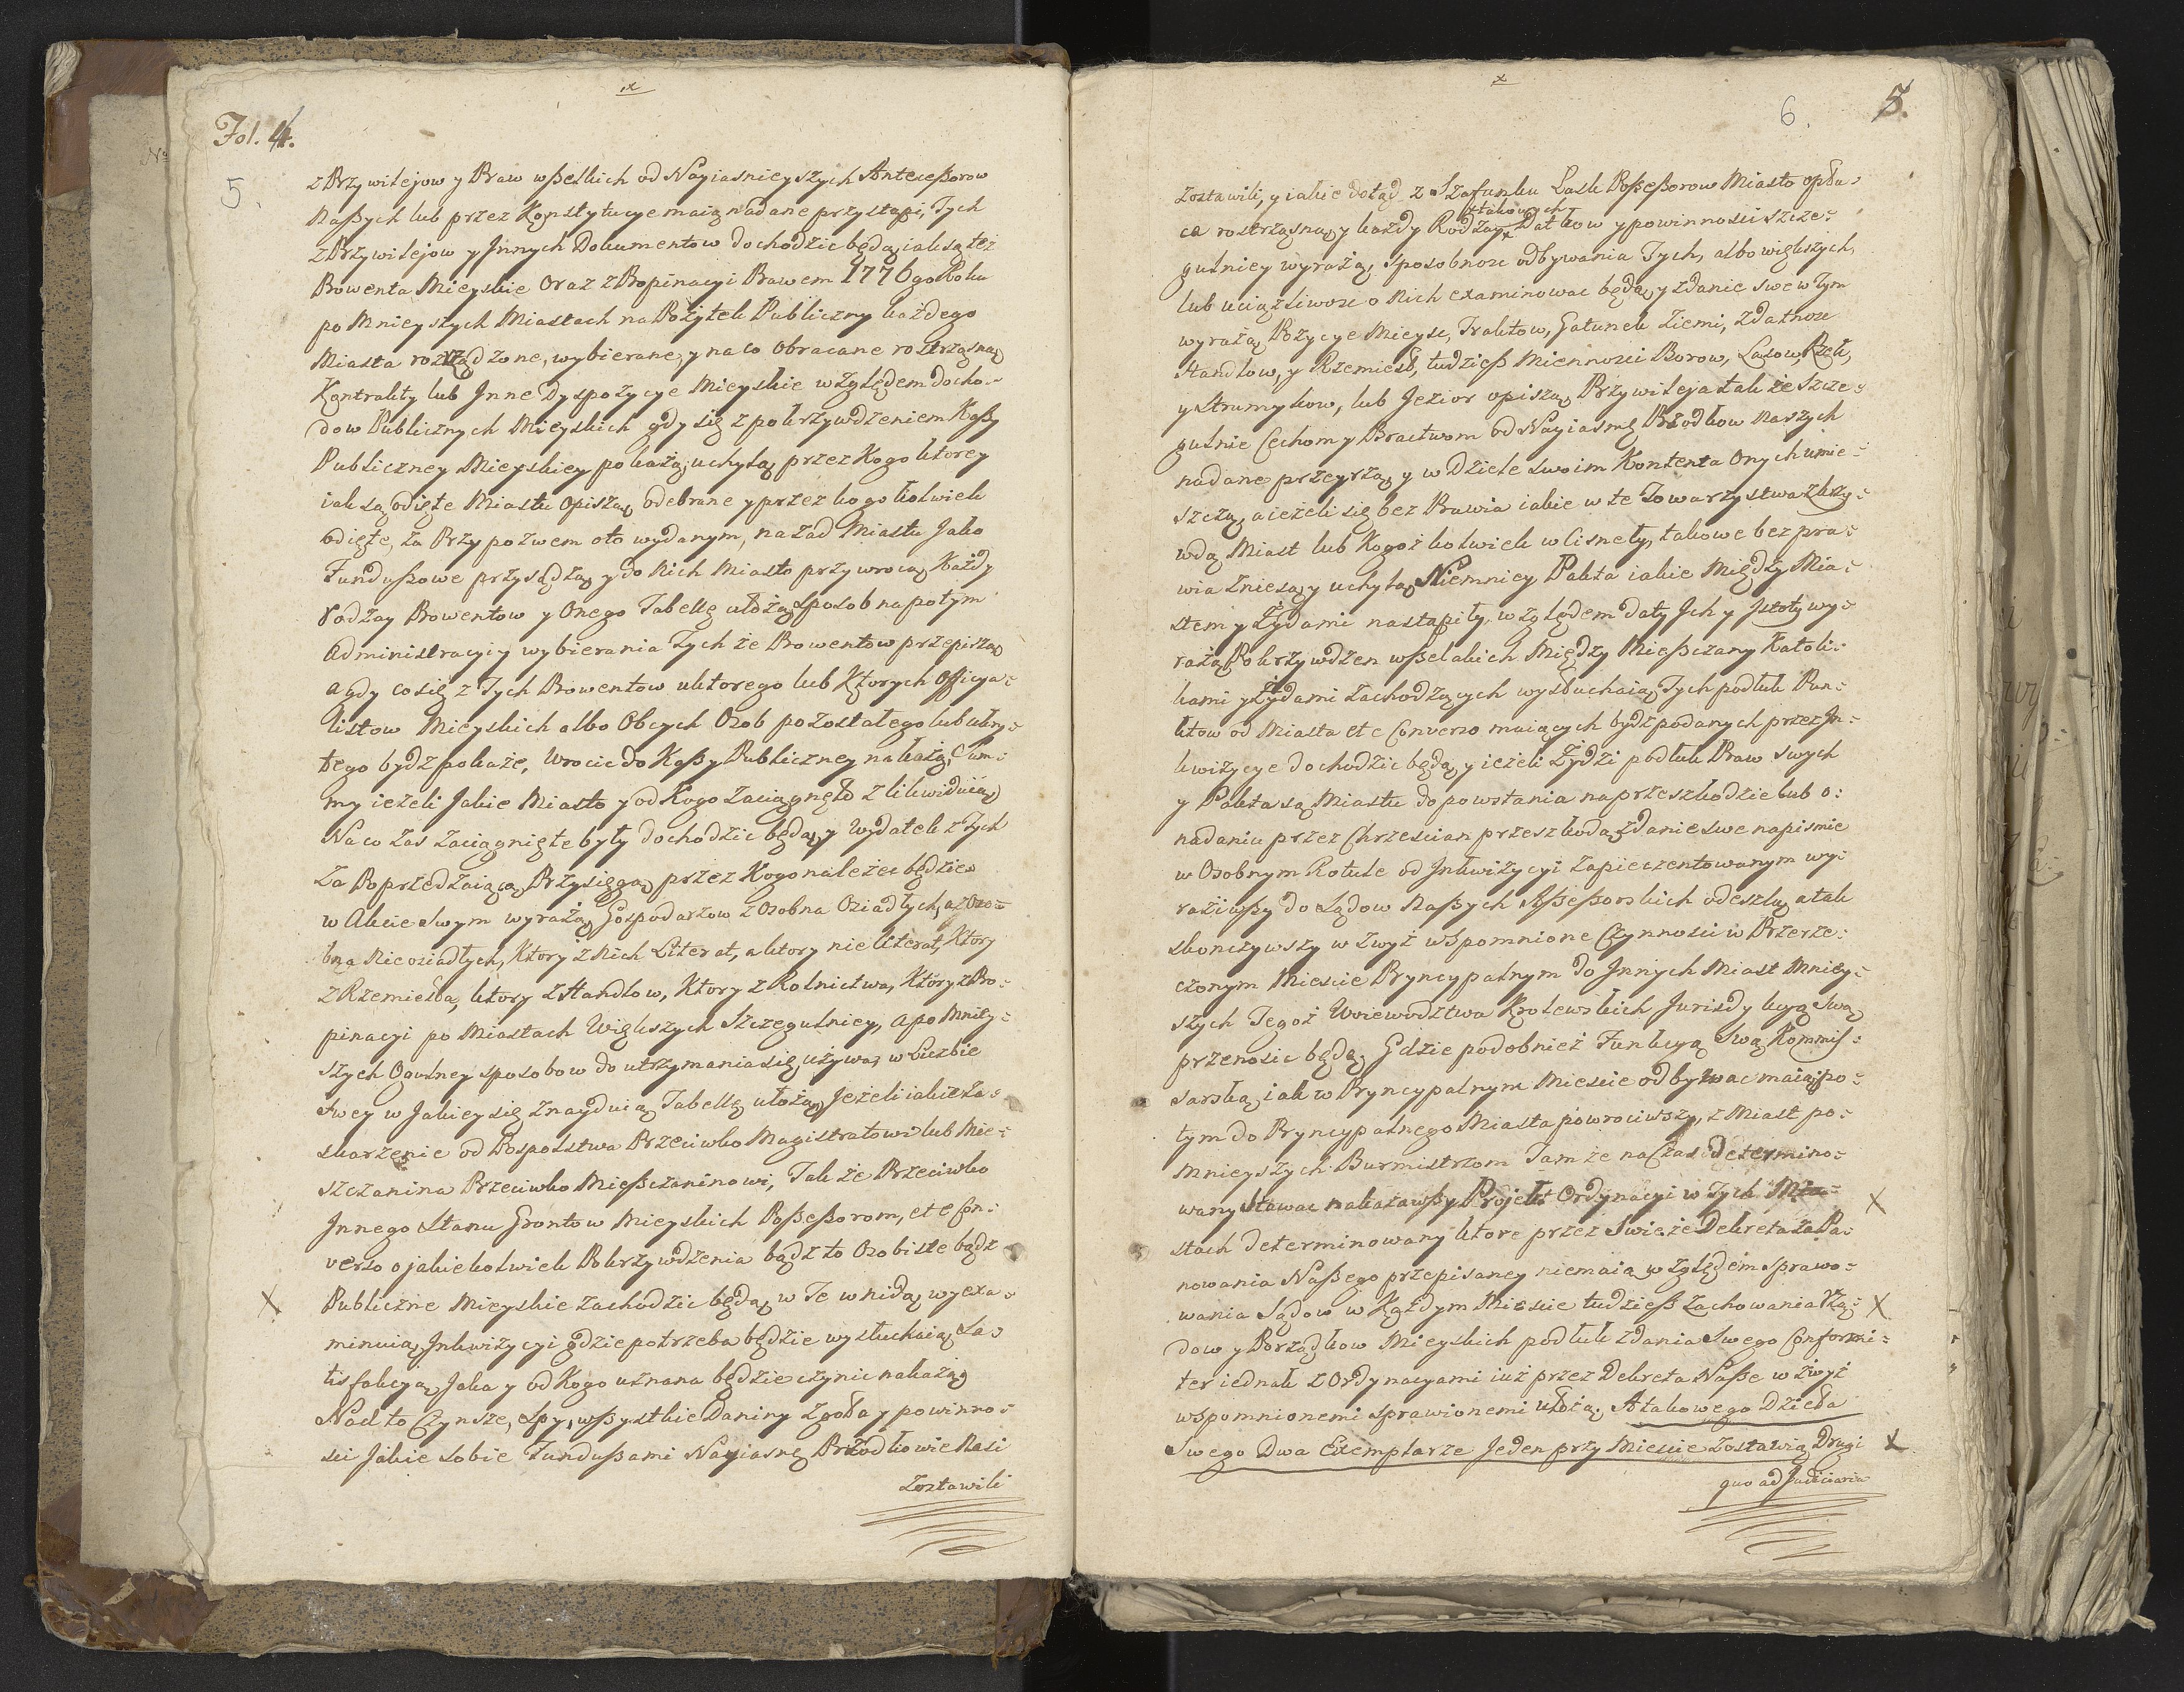 x
Fol. 4.
5.
z Przywilejow y Praw wßelkich od Nayiasnieyszych Anteceßorow
Naßych lub przez Konstytucye maią nadane przystąpi, Tych
z Przywilejow y Jnnych Dokumentow dochodzic będą, iak są też
Prowenta Mieyskie oraz z Propinacyi Prawem 1776go Roku
po Mnieyszych Miastach na Pożytek Publiczny każdego
Miasta rozrządzone, wybierane, y na co obracane roztrząsną
Kontrakty lub Jnne Dyspozycye Mieyskie względem docho-
dow Publicznych Mieyskich gdy się z pokrzywdzeniem Kaßy
Publiczney Mieyskiey pokażą, uchylą, przez Kogo ktorey
iak są odięte Miastu opiszą, odebrane y przez kogokolwiek
odięte, za Przypozwem oto wydanym, nazad Miastu Jako
Fundußowe przysądzą, y do Nich Miasto przywrocą, Każdy
rodzay Prowentow y Onego Tabellę ułożą, sposob napotym
Administracyi y wybierania Tych że Prowentow przepiszą
a gdy co się z Tych Prowentow u ktorego lub Ktorych Officya-
listow Mieyskich albo Obcych Osob pozostałego lub ukry-
tego bydz pokaże, Wrocic do Kaßy Publiczney nakażą, Sum-
my ieżeli Jakie Miasto y od Kogo zaciągnęło zlikwiduią
Na co zas zaciągnięte były dochodzic będą, y Wydatek z Tych
Za Poprzedzaiącą Przysięgą, przez Kogo należec będzie
w Akcie swym wyrażą, Gospodarzow z osobna Osiadłych, a z oso-
bna Nieosiadłych, Ktory z Nich Literat, a ktory nie literat, Ktory
z Rzemiesła, ktory z Handlow, Ktory z Rolnictwa, Ktory z Pro-
pinacyi po Miastach Większych Szczegulniey, a po Mniey-
szych Ogulney sposobow do utrzymania się używa, w Liczbie
swey w Jakiey się znayduią Tabellę ułożą, Jeżeli iakie za-
skarżenie od Pospolstwa Przeciwko Magistratowi lub Mie-
szczanina Przeciwko Mießczaninowi, Tak że Przeciwko
Jnnego Stanu Gruntow Mieyskich Poßeßorom, et e Con-
verso o jakiekolwiek Pokrzywdzenia bądz to Osobiste bądz
X Publiczne Mieyskie zachodzic będą, w Te wnidą, wyexa-
minuią, Jnkwizycyi gdzie potrzeba będzie wysłuchaią, Sa-
tisfakcyą Jaka y od Kogo uznana będzie czynic nakażą
Nad to Czynsze, Spy, wßystkie Daniny Zgoła y powinno-
sci Jakie sobie Fundußami Nayiasnę Przodkowie Nasi
Zostawili
x
6. 5.
zostawili, y iakie dotąd z Szafunku Łask Poßeßorow Miasto opła-
ca roztrząsną, y każdy Rodzay x Datkow y powinnosci szcze-
x takowych
gulniey wyrażą, sposobnosc odbywania Tych, albo większych,
lub uciążliwosc o Nich examinowac będą, y zdanie swe w Tym
wyrażą, Pozycye Mieysc, Traktow, Gatunek Ziemi, Zdatnosc
Handlow, y Rzemiesł, tudzieß Miennosci Borow, Lasow, Rzek,
y Strumykow, lub Jezior opiszą, Przywileja tak że szcze-
gulnie Cechom y Bractwom od Nayiasnę Przodkow Naszych
nadane przeyrzą, y w Dziele swoim Kontenta Onych umie-
szczą, a ieżeli się bez Prawia iakie w te Towarzystwa z krzy-
wdą Miast lub Kogożkolwiek wcisnęły, takowe bezpra-
wia zniosą y uchylą, Niemniey Pakta iakie Między Mia-
stem y Żydami nastąpiły, względem daty Jch y Jstoty wy-
rażą, Pokrzywdzen wßelakich Między Mießczany Katoli-
kami y Żydami zachodzących wysłuchaią, Tych podług Pun-
ktow od Miasta et e Converso maiących bydz podanych przez Jn-
kwizycye dochodzic będą, y ieżeli Żydzi podług Praw swych
y Pakta są Miastu do powstania na przeszkodzie lub o
nadaniu przez Chrzescian przeszkodą, zdanie swe na pismie
w Osobnym Rotule od Jnkwizycyi zapieczentowanym wy-
raziwßy do Sądow Naßych Aßeßorskich odeszlą, a tak
skonczywszy w zwyż wspomnione Czynnosci w Przerze-
czonym Miescie Pryncypalnym do Jnnych Miast Mniey-
szych Tegoż Woiewodztwa Krolewskich Jurisdykcyą Swą
przenosic będą, Gdzie podobnież Funkcyą Swą Kommis-
sarską, iak w Pryncypalnym Miescie odbywac maią, po-
tym do Pryncypalnego Miasta powrociwszy, z Miast po-
mnieyszych Burmistrzom Tam że na Czas determino-
wany stawac nakazawßy Projekt Ordynacyi w Tych Mia- X
stach determinowany ktore przez Swieże Dekreta za Pa-
nowania Naßego przepisaney niemaią względem sprawo-
wania Sądow w Każdym Miescie tudzieß zachowania Rzą- X
dow y Porządkow Mieyskich podług zdania swego Conformi-
ter iednak z Ordynacyami iuż przez Dekreta Naße w zwyż
wspomnionemi sprawionemi ułożą. A takowego Dzieła
Swego Dwa Exemplarze Jeden przy Miescie zostawią Drugi X
quo ad Judiciaria